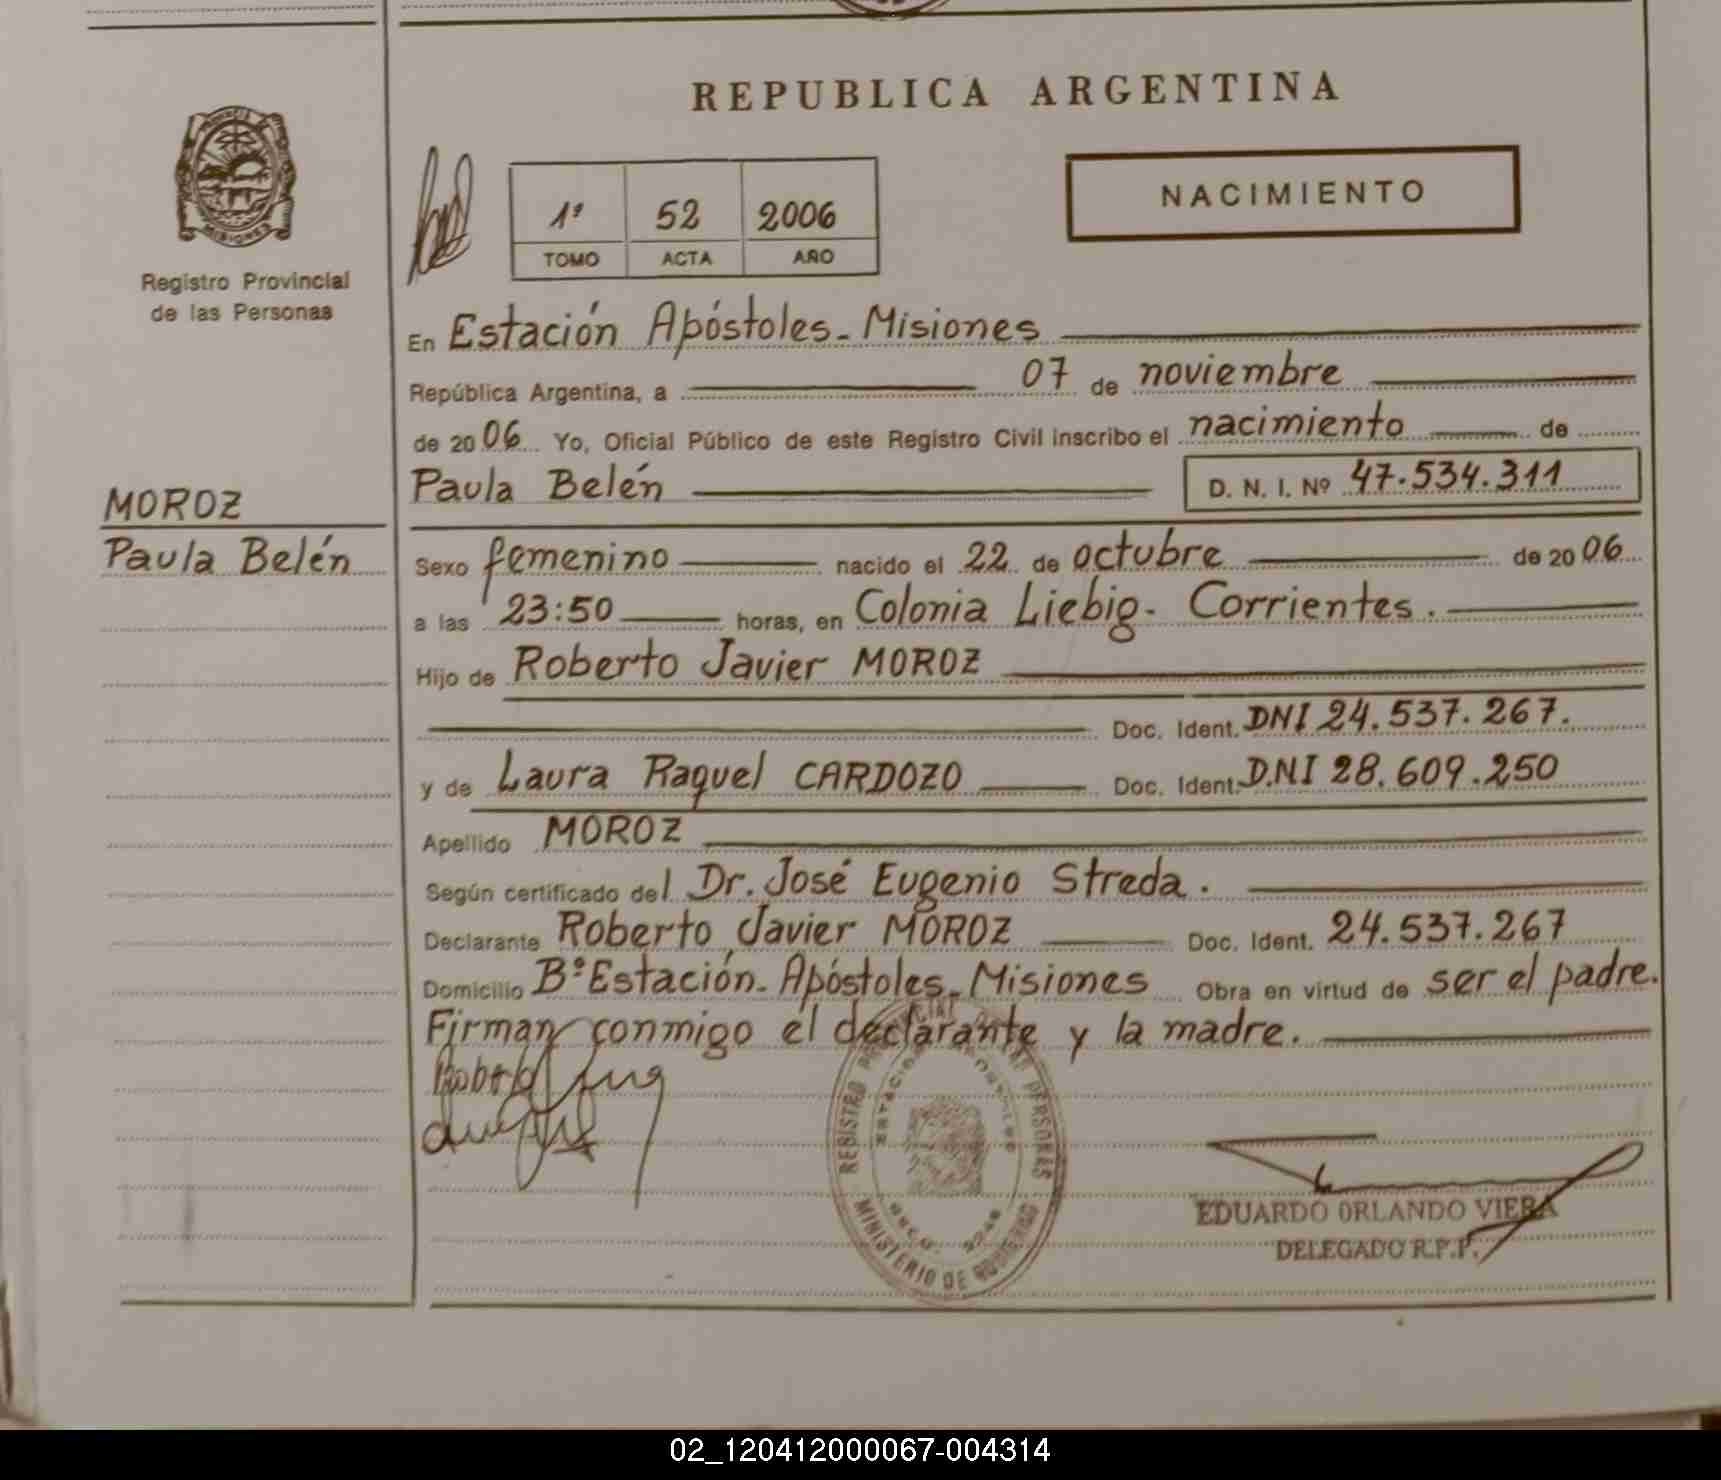 REPUBLICA ARGENTINA
PROVINCIA DE
MISIONES
Registro Provincial
de las Personas
1º 52 2006
TOMO ACTA AÑO
NACIMIENTO
En Estación Apóstoles - Misiones
República Argentina, a 07 de noviembre
de 2006 Yo, Oficial Público de este Registro Civil inscribo el nacimiento de
Paula Belén D. N. I. Nº 47.534.311
MOROZ
Paula Belén
Sexo femenino nacido el 22 de octubre de 2006
a las 23:50 horas, en Colonia Liebig - Corrientes.
Hijo de Roberto Javier MOROZ
Doc. Ident. DNI 24.537.267.
y de Laura Raquel CARDOZO Doc. Ident. D.N.I 28.609.250
Apellido MOROZ
Según certificado del Dr. José Eugenio Streda.
Declarante Roberto Javier MOROZ Doc. Ident. 24.537.267
Domicilio Bº Estación - Apóstoles - Misiones Obra en virtud de ser el padre.
Firman conmigo el declarante y la madre.
REGISTRO PROVINCIAL DE LAS PERSONAS
MINISTERIO DE GOBIERNO
EDUARDO ORLANDO VIERA
DELEGADO R.P.P.
02_120412000067-004314